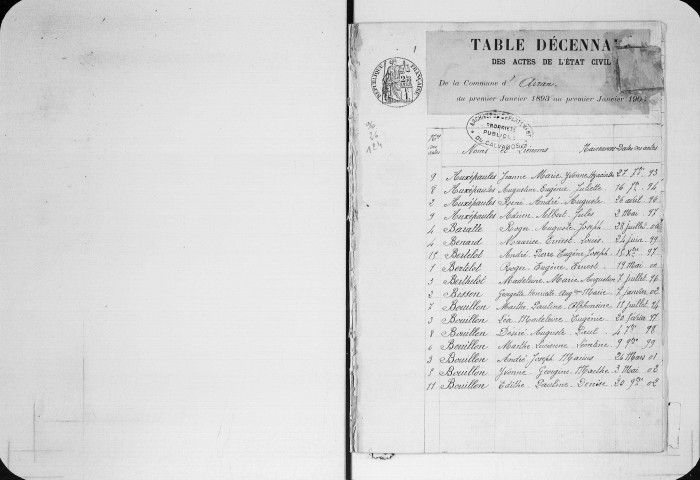 1
TABLE DÉCENNA
DES ACTES DE L'ÉTAT CIVIL
De la Commune d' Airan
du premier Janvier 1893 au premier Janvier 190
RÉPUBLIQUE FRANÇAISE
ARCHIVES DU DÉPARTEMENT
PROPRIÉTÉ
PUBLIQUE
DU CALVADOS
96
26
124
Nos des actes Noms et Prénoms Naissances Dates des actes
9 Auxépaules Jeanne Marie Yvonne 27 7bre 93
8 Auxépaules Augustine Eugénie Juliette 16 94
2 Auxépaules René André Auguste 26 avril 96
3 Auxépaules Adrien Albert Jules 2 Mai 97
4 Baratte Roger Auguste Joseph 28 juillet
4 Benard Maurice Ernest Louis 24 juin 99
12 Bertelot André Pierre Eugène Joseph 15 Xbre 97
1 Bertelot Roger Eugène Ernest 19 Mai 00
3 Berthelot Madeleine Marie Augustine 7 juillet 96
2 Bisson Georgette Marie 7 janvier 02
7 Bouillon Marthe Pauline Alphonsine 11 juillet 94
3 Bouillon Léa Madeleine Eugénie 20 février 97
8 Bouillon Désiré Auguste Paul 4 7bre 98
6 Bouillon Marthe Lucienne Léontine 9 9bre 99
3 Bouillon André Joseph Marius 26 Mars 01
2 Bouillon Yvonne Georgine Marthe 3 Mai 02
11 Bouillon Edithe Pauline Denise 20 9bre 02